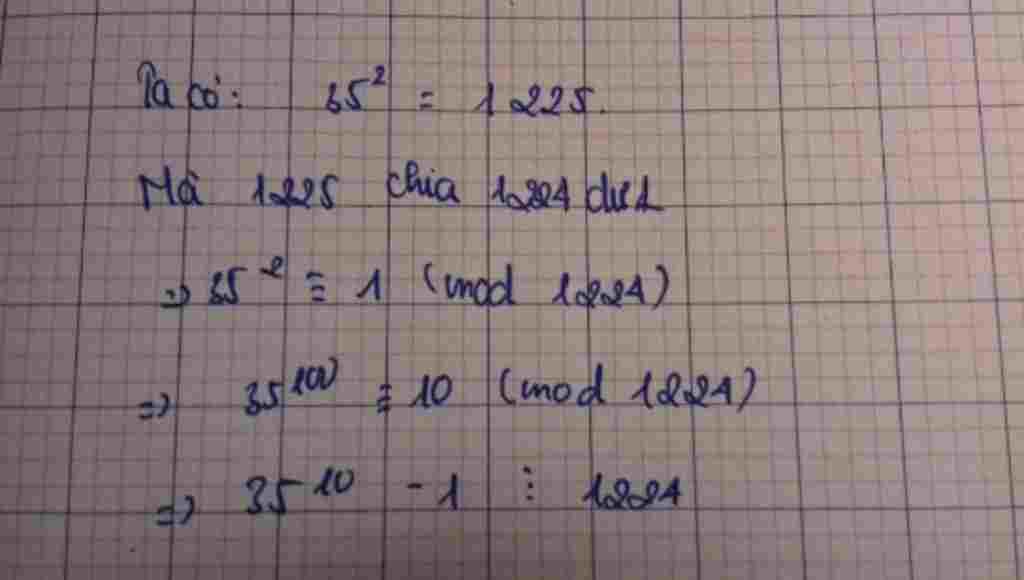 Ta có: 35² = 1225.
Mà 1225 chia 1224 dư 1
=> 35² ≡ 1 (mod 1224)
=> 35¹⁰⁰ ≡ 10 (mod 1224)
=> 35¹⁰ - 1 ⋮ 1224